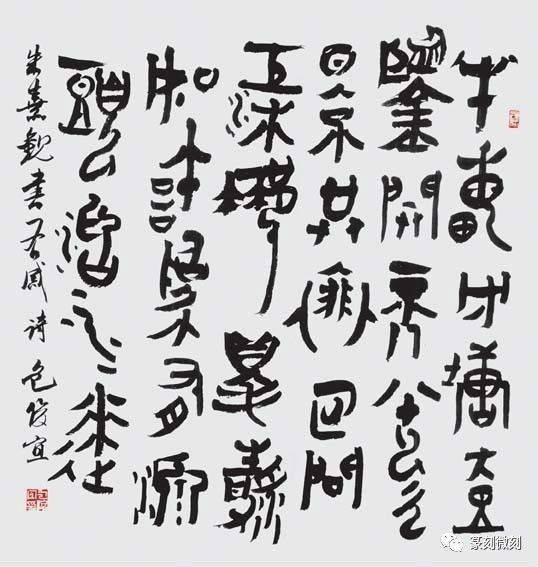 半畝方塘壹
鑒開天光雲
景共徘回問
渠那得清
如許為有源
頭活水來
朱熹觀書有感詩 俊宜
篆刻微刻